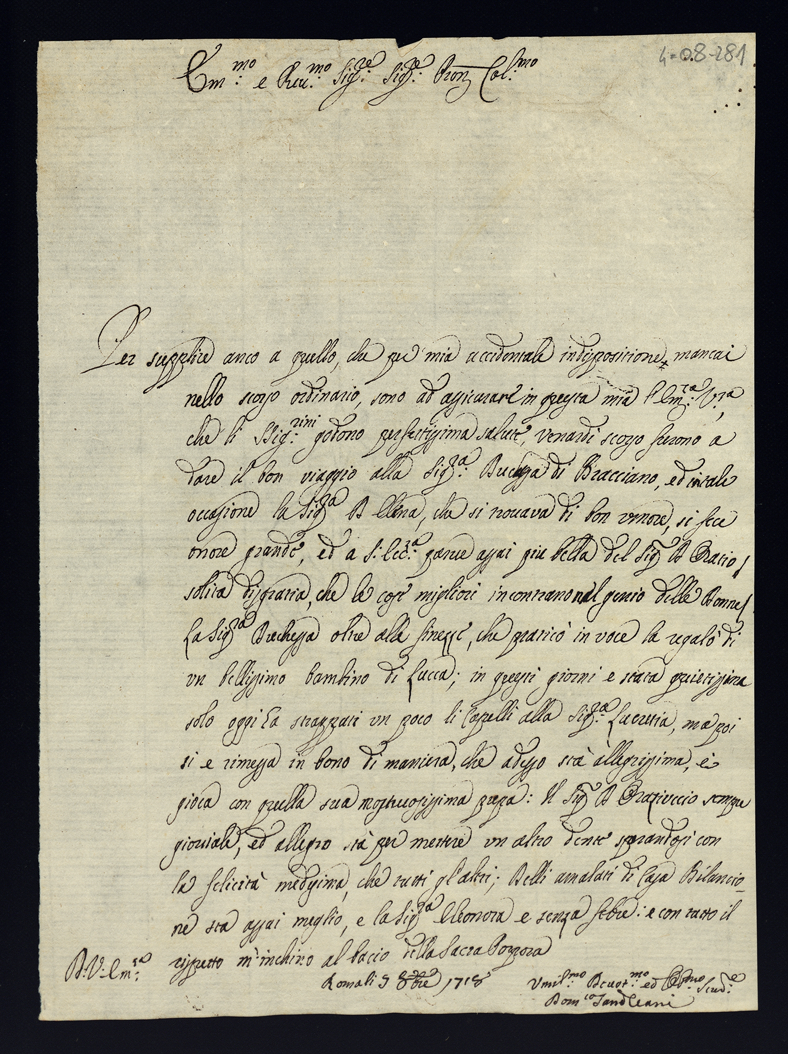 4-08-281
Em.mo e Reu.mo Sig.re Sig.re Pron Col.mo
Per supplire anco a quello, che per mia accidentale indispositione mancai
nello scorso ordinario, sono ad assicurare in questa mia l'Em.za V.ra
che li SSig.rini godono perfettissima salute, venerdi scorso furono a
dare il bon viaggio alla Sig.ra Duchessa di Bracciano, ed in tale
occasione la Sig.ra D Elena, che si trouava di bon umore, si fece
onore grande, ed a S: Ecc.za parue assai piu bella del Sig.r D Oratio,
solita disgratia, che le cose migliori incontrano nel genio delle Donne,
La Sig.ra Duchessa oltre alle finezze, che praticò in voce la regalò di
vn bellissimo bambino di Lucca; in questi giorni e stata quietissima
solo oggi ha strappati vn poco li Capelli alla Sig.ra Lucretia, ma poi
si e rimessa in bono di maniera, che adesso stà allegrissima, e
gioca con quella sua mostruosissima pupa: Il Sig.r D Oratiuccio sempre
giouiale, ed allegro stà per mettere vn altro dente sperandosi con
la felicità medesima, che tutti gl'altri; Delli amalati di Casa Bilancio-
ne sta assai meglio, e la Sig.ra Eleonora e senza febre: e con tutto il
rispetto m'inchino al bacio della Sacra Porpora
D. V. Em.za
Roma li 8bre 1718
Vmil.mo Deuot.mo ed
Dom.co